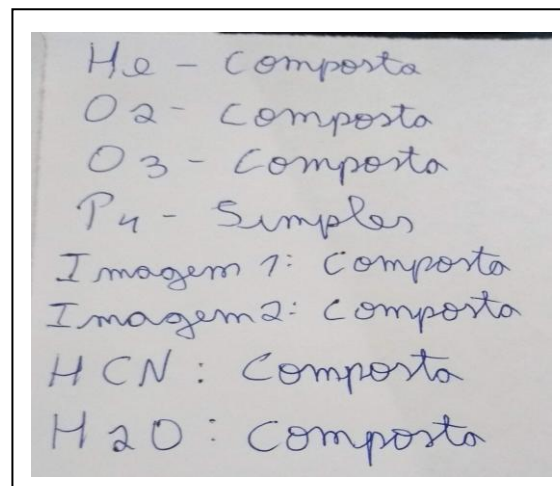 He - Composta
O2 - Composta
O3 - Composta
P4 - Simples
Imagem 1: Composta
Imagem 2: Composta
HCN: Composta
H2O: Composta